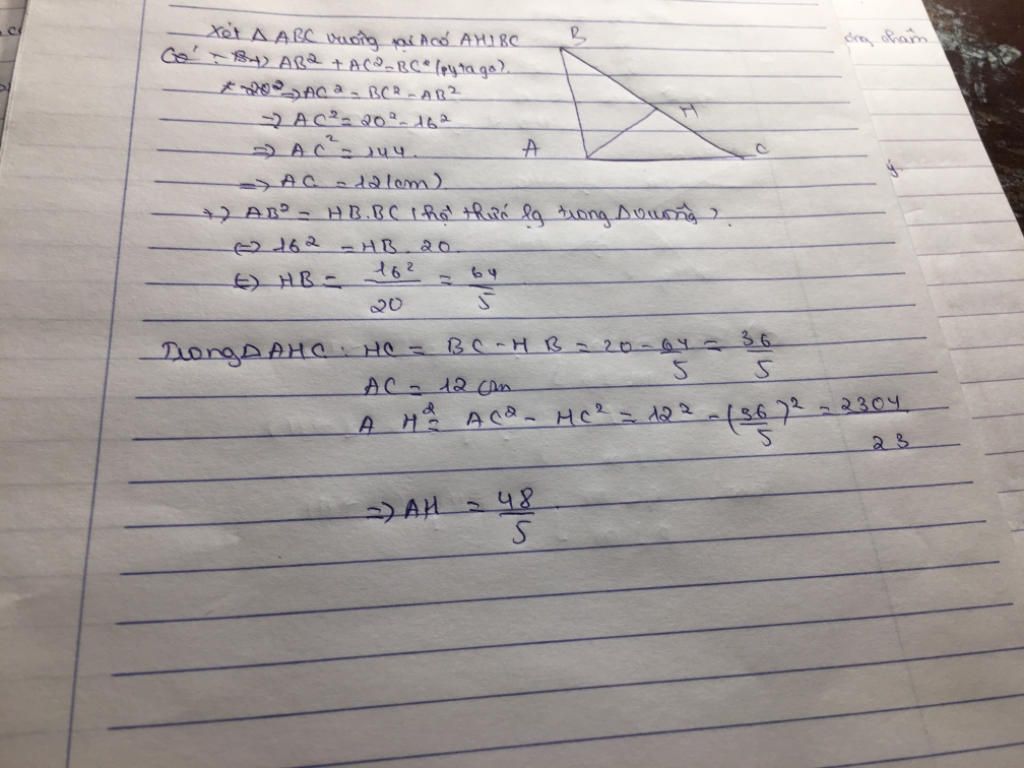 Xét Δ ABC vuông tại A có AH⊥BC
Có: +) AB² + AC² = BC² (pytago).
⇒ AC² = BC² - AB²
⇒ AC² = 20² - 16²
⇒ AC² = 144.
⇒ AC = 12 (cm)
+) AB² = HB.BC (hệ thức lg trong Δ vuông)
⇔ 16² = HB. 20.
⇔ HB = 16²/20 = 64/5
Trong Δ AHC: HC = BC - HB = 20 - 64/5 = 36/5
AC = 12 cm
AH² = AC² - HC² = 12² - (36/5)² = 2304/23
⇒ AH = 48/5
B
H
A
C
ý